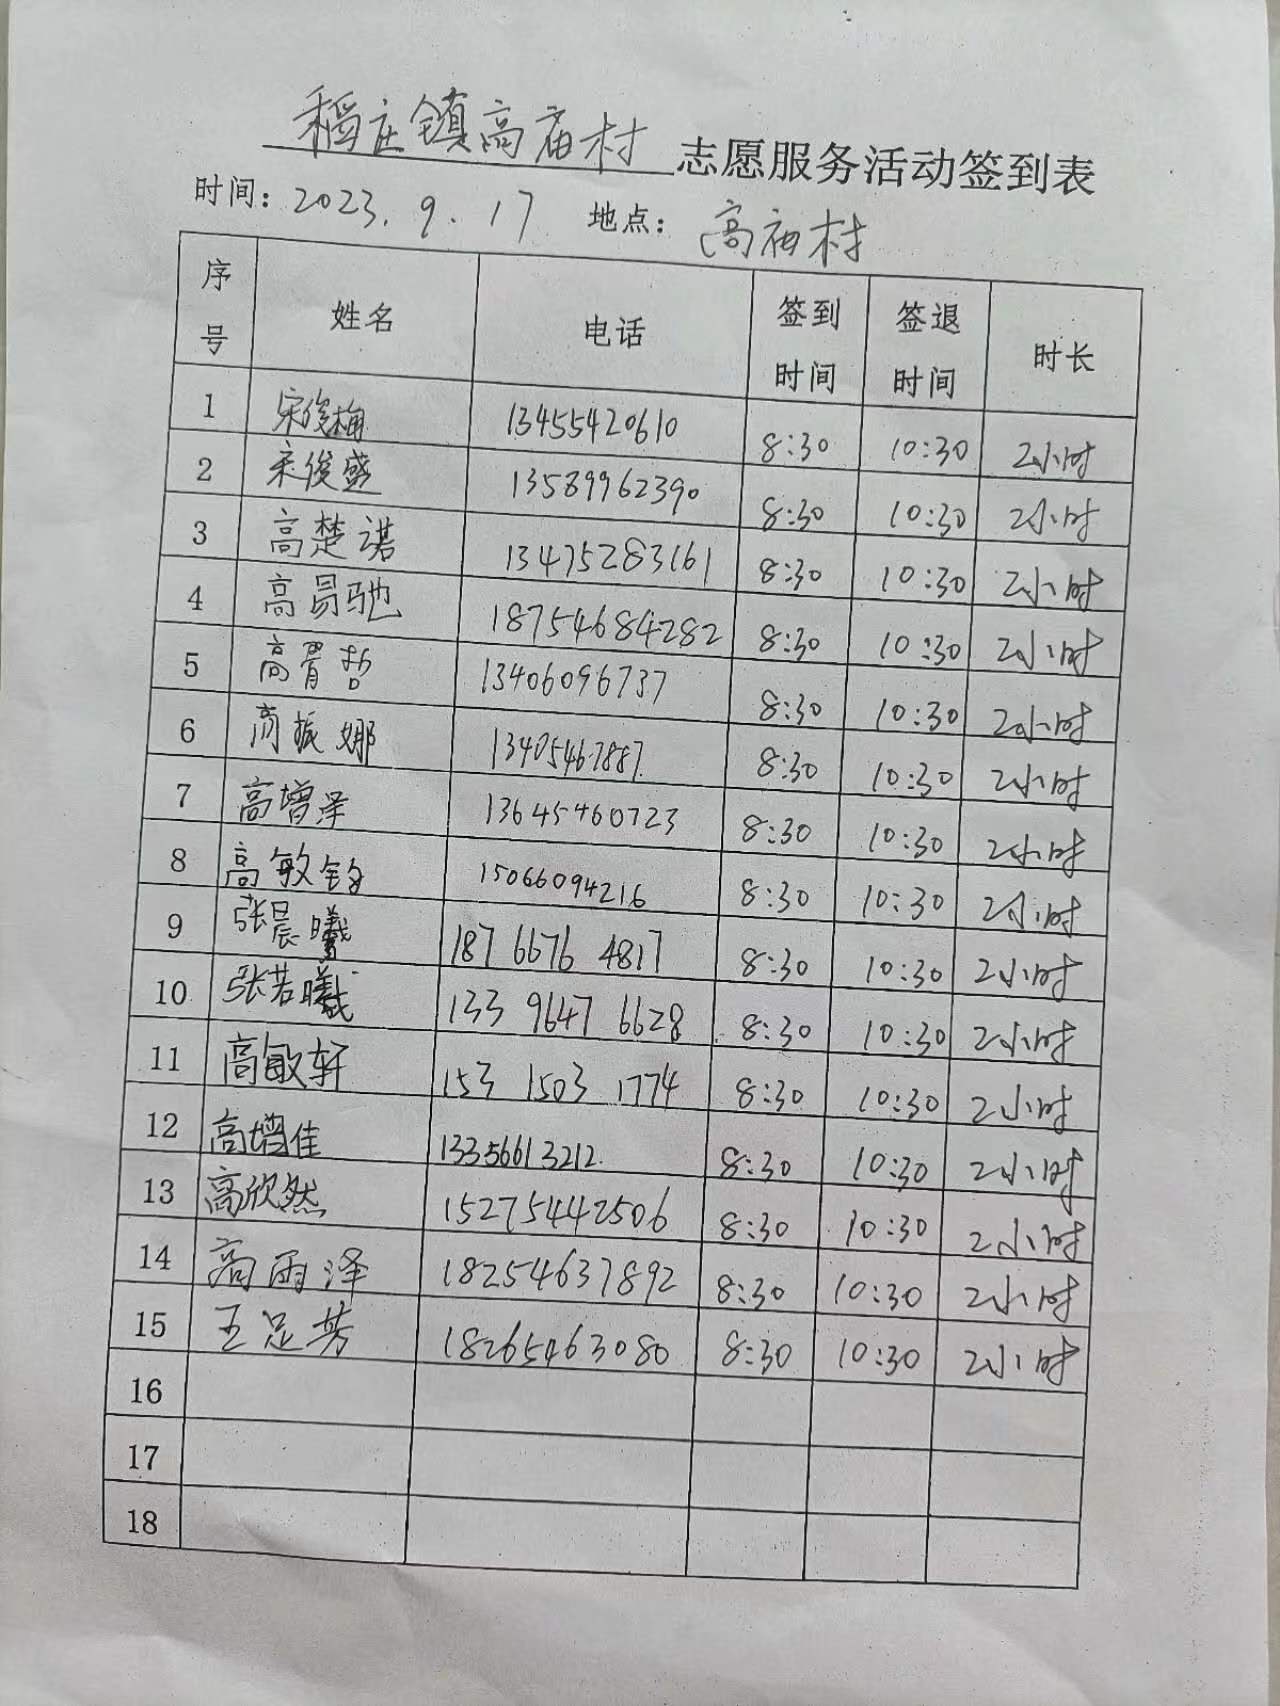 稻庄镇高庙村 志愿服务活动签到表
时间: 2023.9.17 地点: 高庙村
序号 姓名 电话 签到时间 签退时间 时长
1 宋俊梅 13455420610 8:30 10:30 2小时
2 宋俊盛 13589962390 8:30 10:30 2小时
3 高楚诺 13475283161 8:30 10:30 2小时
4 高易驰 18754684282 8:30 10:30 2小时
5 高胥哲 13406096737 8:30 10:30 2小时
6 高振娜 13405467887 8:30 10:30 2小时
7 高增泽 13645460723 8:30 10:30 2小时
8 高敏 15066094216 8:30 10:30 2小时
9 张晨曦 187 6676 4817 8:30 10:30 2小时
10 张若曦 133 9647 6628 8:30 10:30 2小时
11 高敏轩 153 1503 1774 8:30 10:30 2小时
12 高增佳 13356613212. 8:30 10:30 2小时
13 高欣然 15275442506 8:30 10:30 2小时
14 高雨泽 18254637892 8:30 10:30 2小时
15 王足芳 18265463080 8:30 10:30 2小时
16
17
18